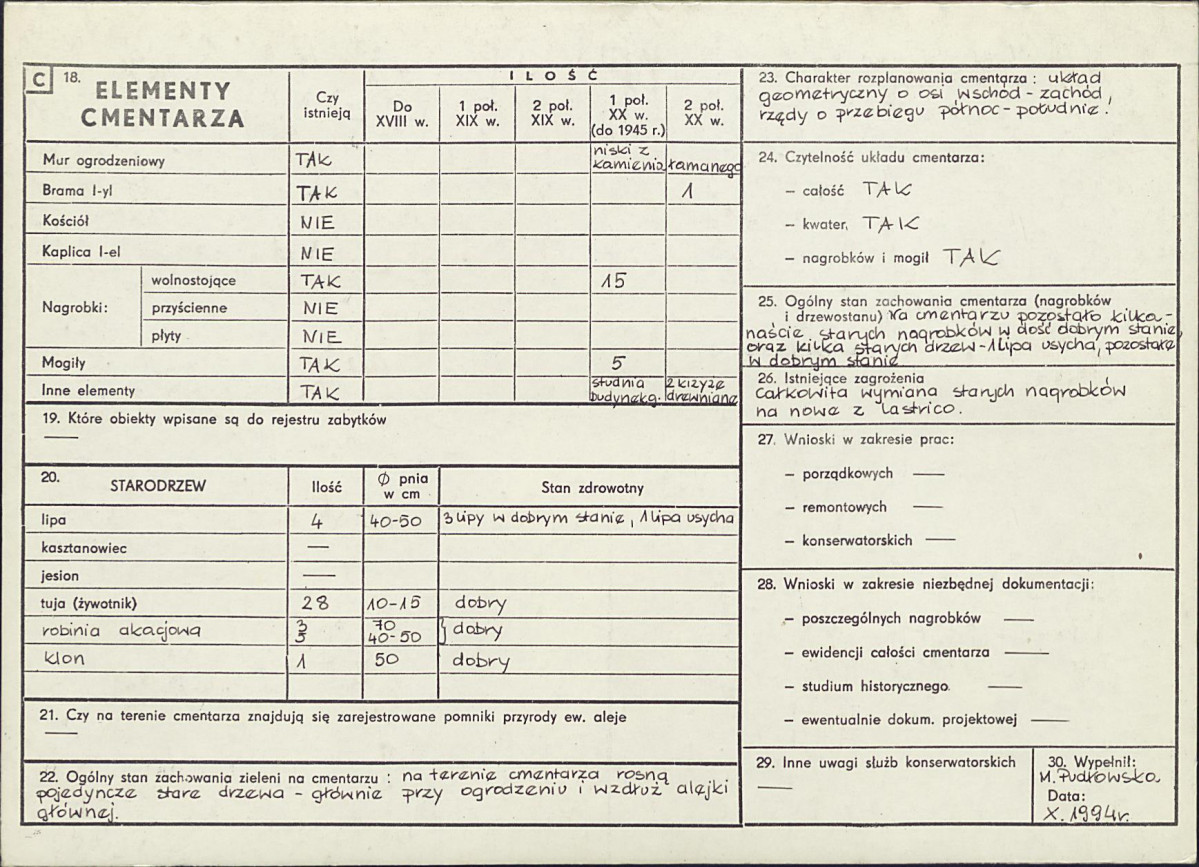 C 18. ELEMENTY CMENTARZA
Czy istnieją
ILOŚĆ
Do XVIII w.
1 poł. XIX w.
2 poł. XIX w.
1 poł. XX w. (do 1945 r.)
2 poł. XX w.
Mur ogrodzeniowy TAK niski z kamienia łamanego
Brama I-yl TAK 1
Kościół NIE
Kaplica I-el NIE
Nagrobki:
wolnostojące TAK 15
przyścienne NIE
płyty NIE
Mogiły TAK 5
Inne elementy TAK studnia budynek g. 2 krzyże drewniane
19. Które obiekty wpisane są do rejestru zabytków
—
20. STARODRZEW Ilość Ø pnia w cm Stan zdrowotny
lipa 4 40-50 3 lipy w dobrym stanie, 1 lipa usycha
kasztanowiec —
jesion —
tuja (żywotnik) 28 10-15 dobry
robinia akacjowa 3 70 } dobry
40-50
klon 1 50 dobry
21. Czy na terenie cmentarza znajdują się zarejestrowane pomniki przyrody ew. aleje
—
22. Ogólny stan zachowania zieleni na cmentarzu : na terenie cmentarza rosną
pojedyncze stare drzewa - głównie przy ogrodzeniu i wzdłuż alejki
głównej.
23. Charakter rozplanowania cmentarza : układ
geometryczny o osi wschód - zachód,
rzędy o przebiegu północ - południe.
24. Czytelność układu cmentarza:
— całość TAK
— kwater, TAK
— nagrobków i mogił TAK
25. Ogólny stan zachowania cmentarza (nagrobków
i drzewostanu) Na cmentarzu pozostało kilka-
naście starych nagrobków w dość dobrym stanie,
oraz kilka starych drzew - 1 lipa usycha, pozostałe
w dobrym stanie
26. Istniejące zagrożenia
Całkowita wymiana starych nagrobków
na nowe z lastrico.
27. Wnioski w zakresie prac:
— porządkowych —
— remontowych —
— konserwatorskich —
28. Wnioski w zakresie niezbędnej dokumentacji:
— poszczególnych nagrobków —
— ewidencji całości cmentarza —
— studium historycznego. —
— ewentualnie dokum. projektowej —
29. Inne uwagi służb konserwatorskich
—
30. Wypełnił:
M. Pudłowska
Data:
X. 1994r.